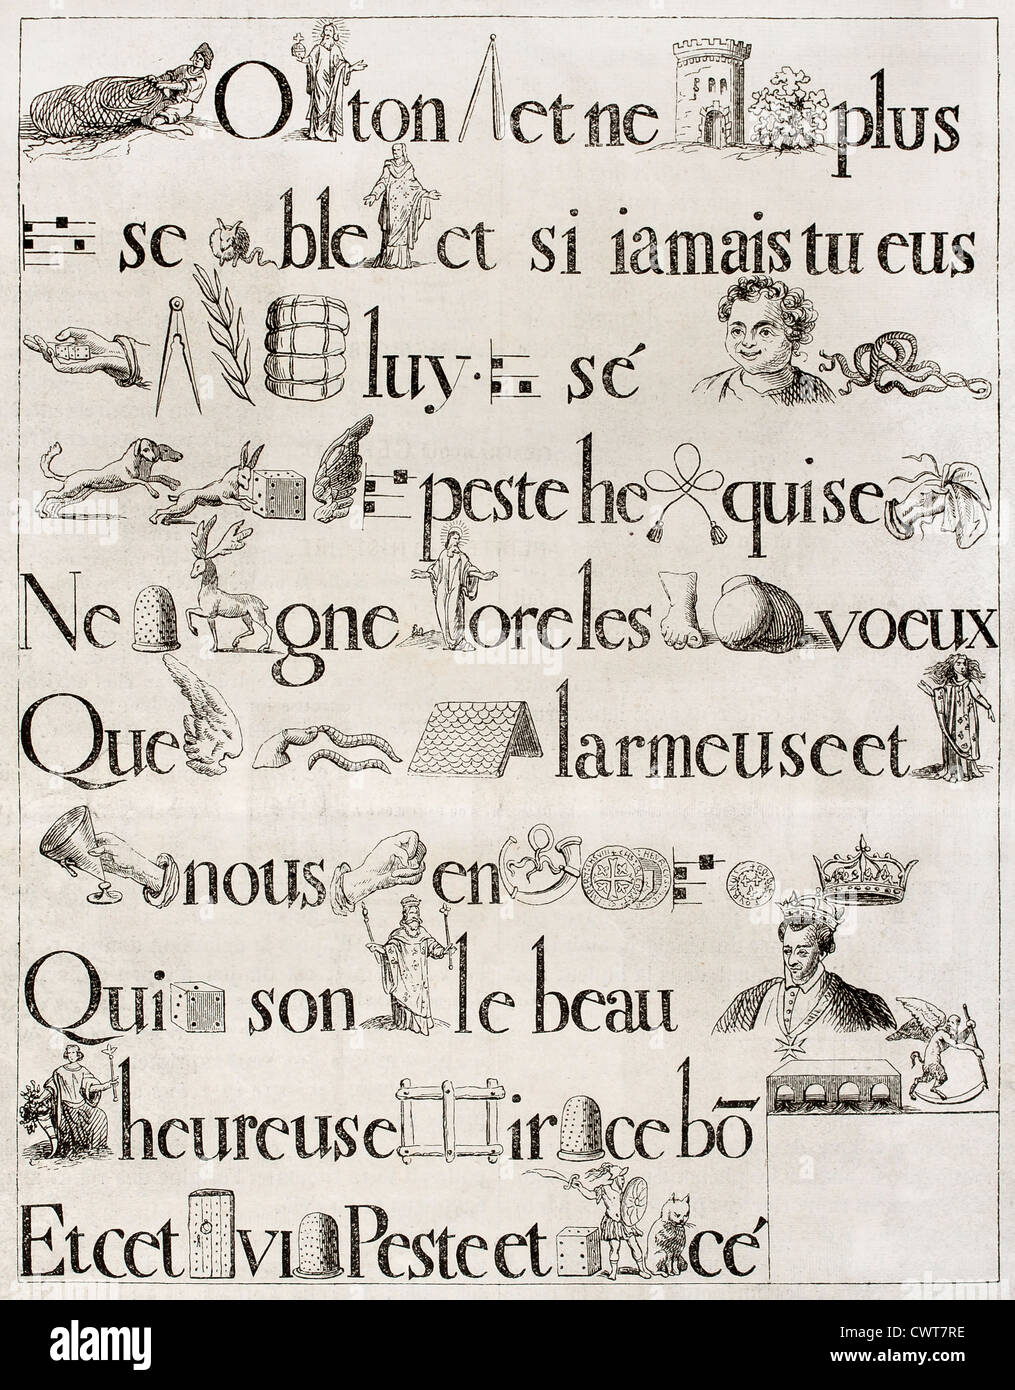 O ton et ne plus
se ble et si iamais tu eus
luy · sé
peste he qui se
Ne gne ore les voeux
Que larmeuse et
nous en
Qui son le beau
heureuse ir ce bō
Et cet vi Peste et cé
alamy
Image ID: CWT7RE
www.alamy.com